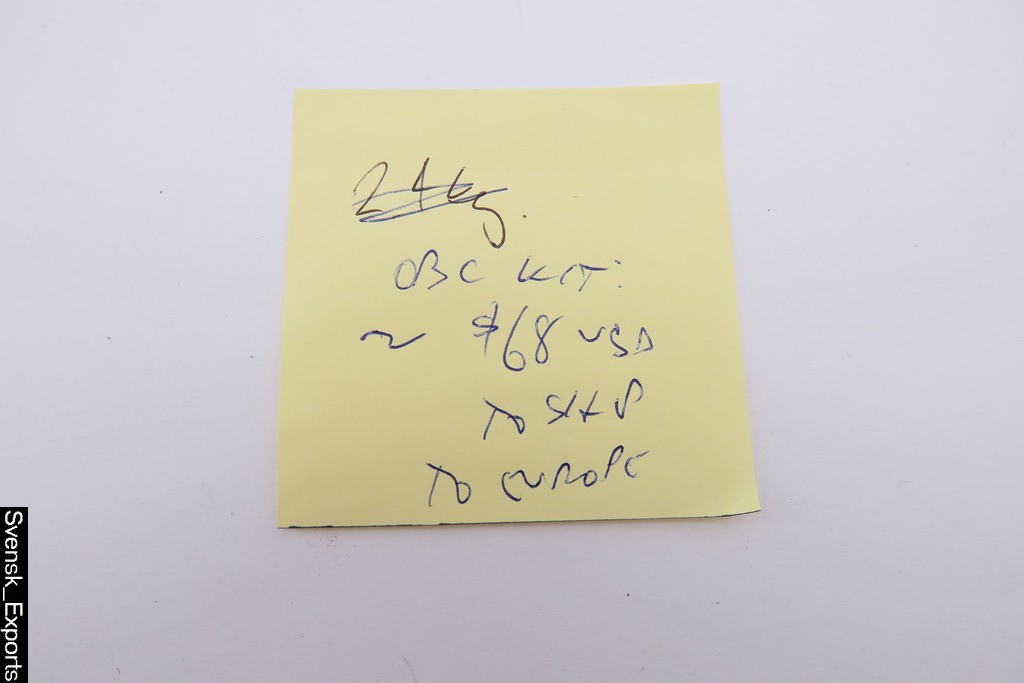 24kg.
OBC KIT:
~ $68 USD
TO SHIP
TO EUROPE
Svensk_Exports